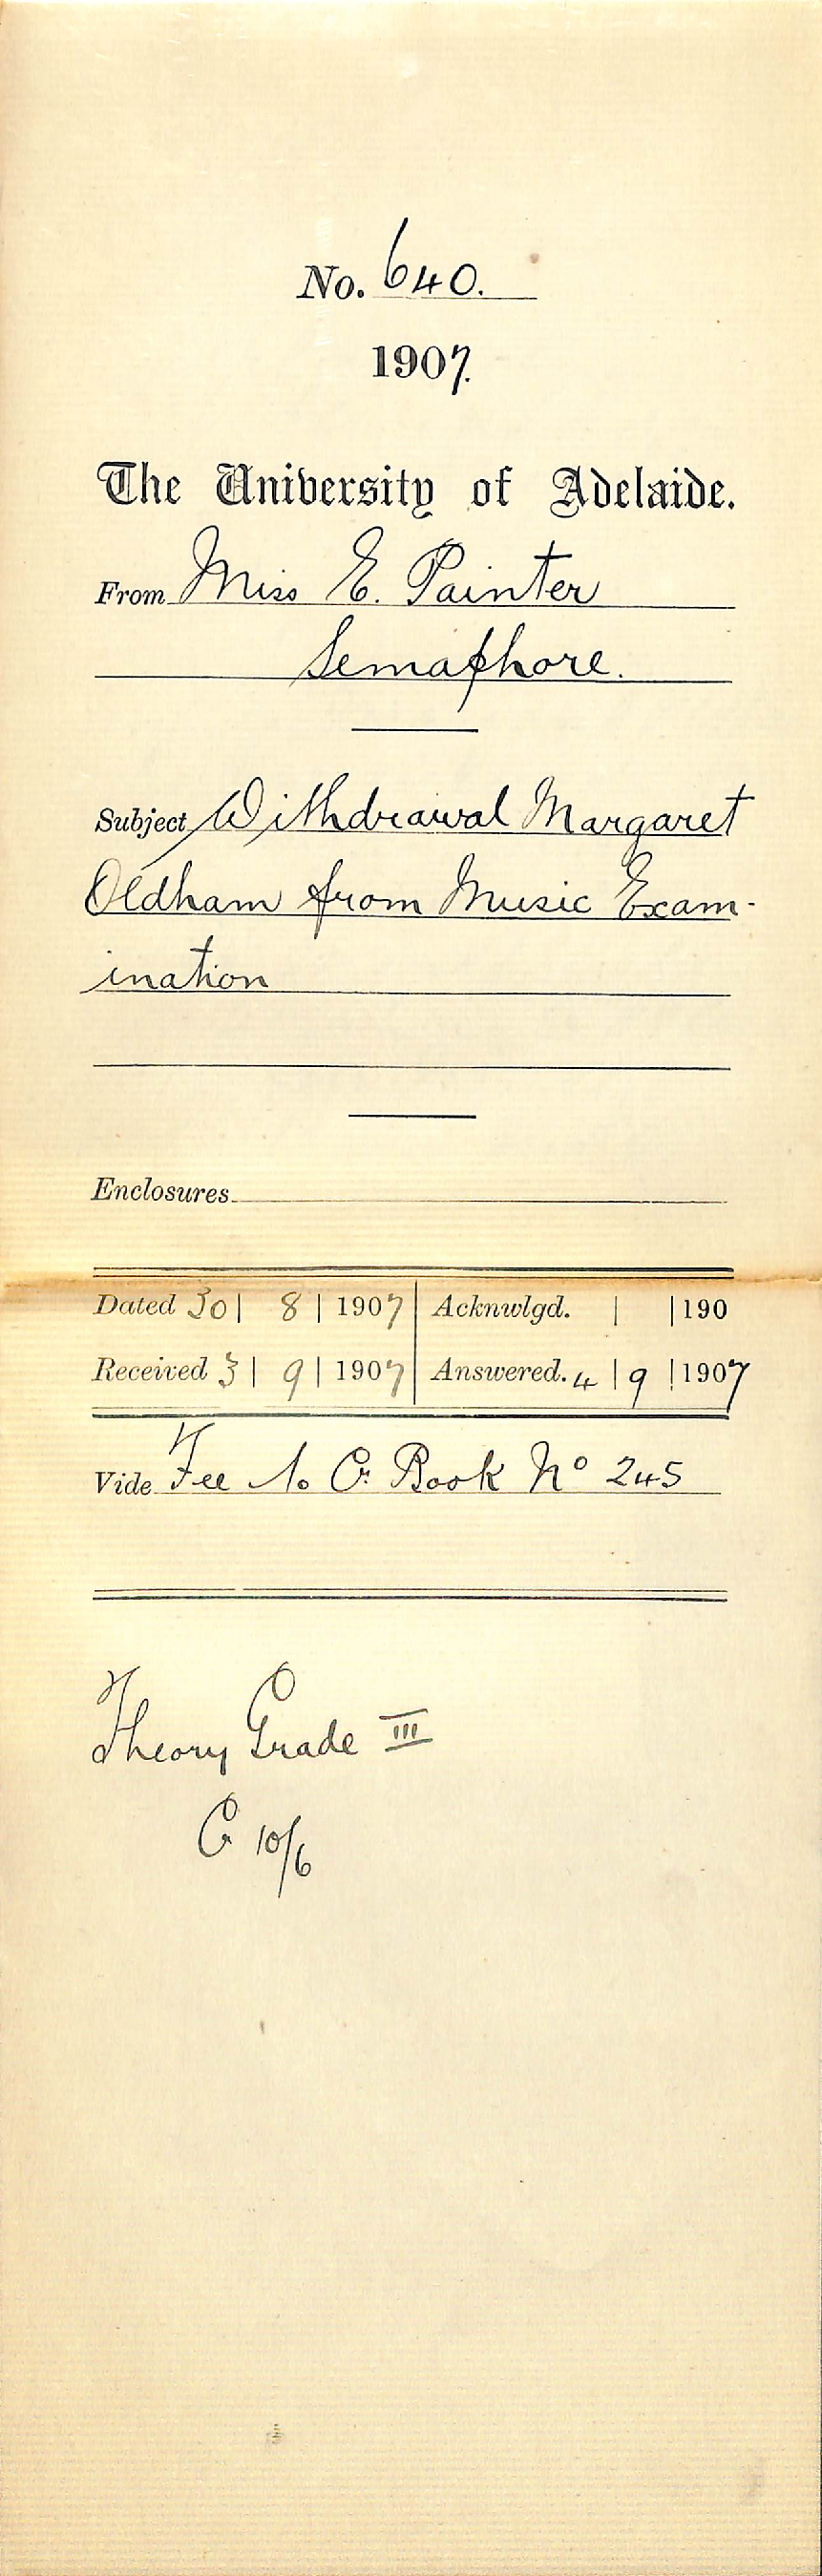 No. 640.
1907.
The University of Adelaide.
From Miss E. Painter
Semaphore.
Subject Withdrawal Margaret
Oldham from Music Exam-
ination
Enclosures
Dated 30 | 8 | 1907 | Acknwlgd. | | 190
Received 3 | 9 | 1907 | Answered. 4 | 9 | 1907
Vide Fee Book No 245
Theory Grade III
10/6